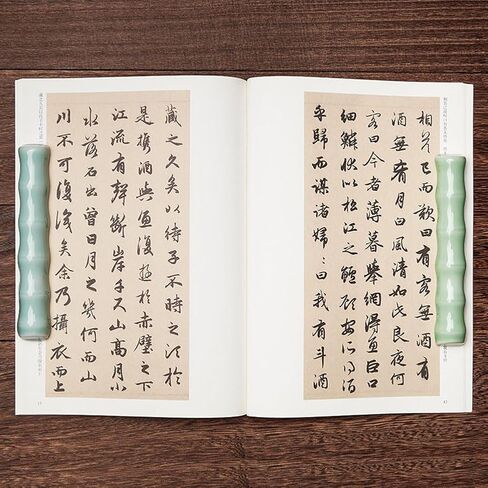 相答已而歎曰有客無酒有
酒無肴月白風清如此良夜何
客曰今者薄暮舉網得魚巨口
細鱗狀似松江之鱸顧安所得
乎歸而謀諸婦〻曰我有斗酒
藏之久矣以待子不時之須於
是攜酒與魚復遊於赤壁之下
江流有聲斷岸千尺山高月小
水落石出曾日月之幾何而山
川不可復識矣余乃攝衣而上